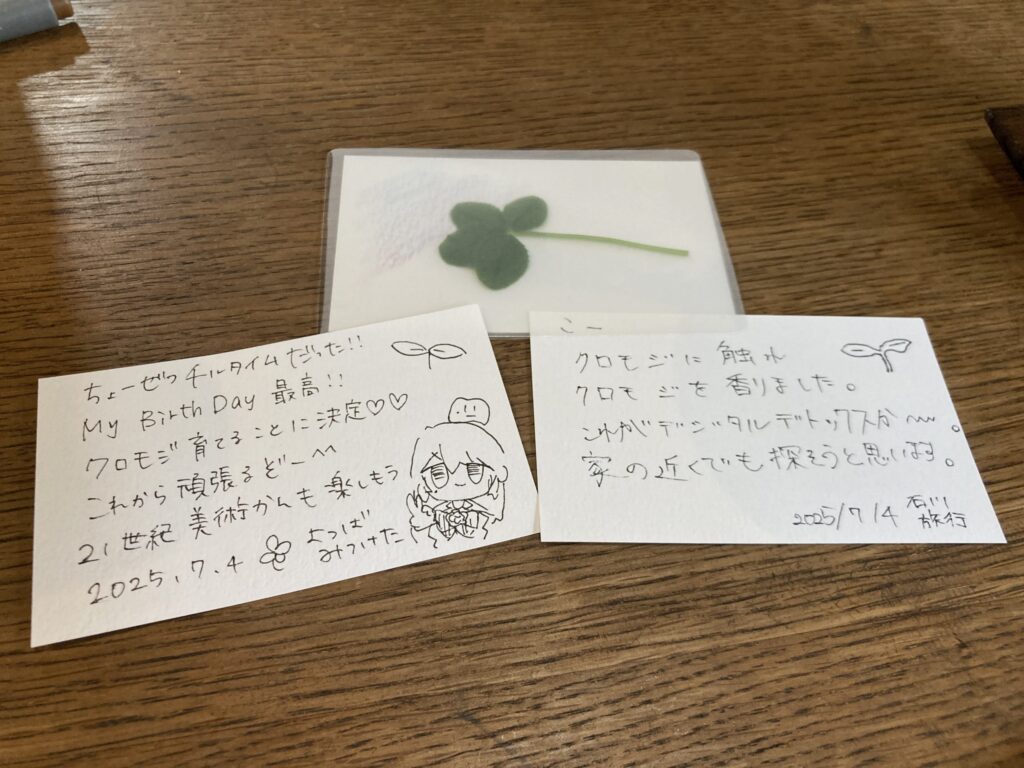 ちょーぜつチルタイムだった!!
My Birth Day 最高!!
クロモジ育てることに決定♡♡
これから頑張るどー^^
21世紀美術かんも楽しもう
2025.7.4 よつば
みつけた
こー
クロモジに触れ
クロモジを香りました。
これがデジタルデトックスか〜。
家の近くでも探そうと思います。
2025/7/4 石川
旅行